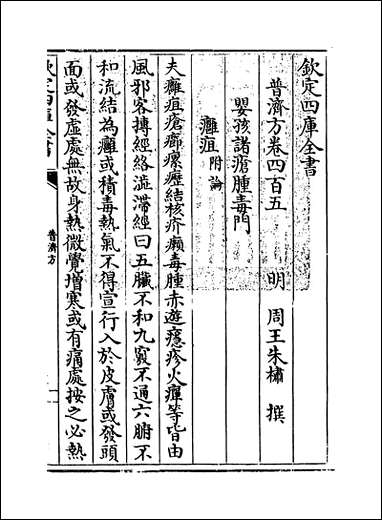 欽定四庫全書
普濟方卷四百五
明 周王朱橚 撰
嬰孩諸瘡腫毒門
癰疽附論
夫癰疽瘡癤瘰癧結核疥癩毒腫赤遊癮疹火癉等皆由
風邪客搏經絡澁滯經曰五臟不和九竅不通六腑不
和流結為癰或積毒熱氣不得宣行入於皮膚或發頭
面或發虛處無故身熱微覺增寒或有痛處按之必熱
普濟方